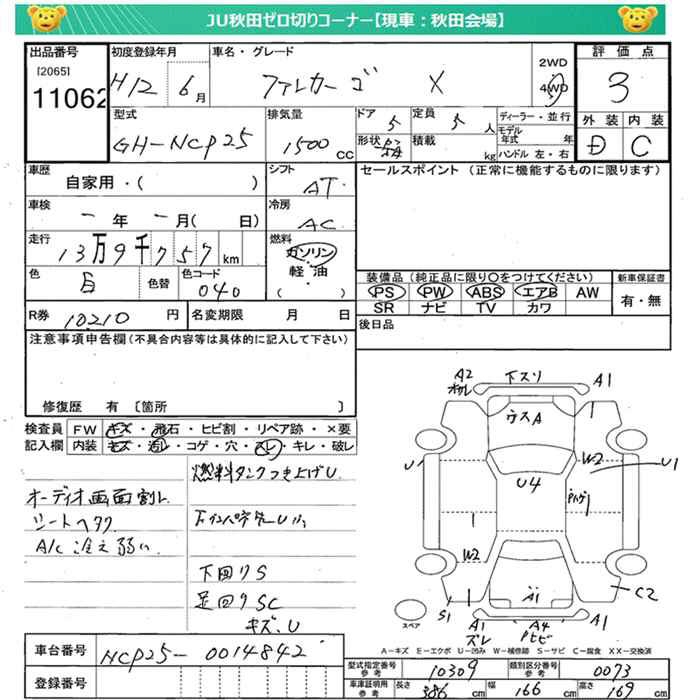 JU秋田ゼロ切りコーナー【現車：秋田会場】
出品番号
[2065]
11062
初度登録年月
H12 6月
車名・グレード
ファンカーゴ X
2WD
4WD
評価点
3
外装 内装
D C
型式
GH-NCP25
排気量
1500 cc
ドア 5
形状
定員 5 人
積載 kg
ディーラー・並行
モデル年式 年
ハンドル 左・右
車歴
自家用・( )
シフト
AT
車検
－年－月( 日)
冷房
AC
走行
13万9千757 km
燃料
ガソリン
軽・油
( ・ )
色
白
色替
色コード
040
R券 10210 円
名変期限 月 日
セールスポイント (正常に機能するものに限ります)
装備品 (純正品に限り〇をつけてください)
PS PW ABS エアB AW
SR ナビ TV カワ
新車保証書
有・無
後日品
注意事項申告欄 (不具合内容等は具体的に記入して下さい)
修復歴 有 〔箇所 〕
検査員記入欄
FW キズ・飛石・ヒビ割・リペア跡・×要
内装 キズ・汚レ・コゲ・穴・スレ・キレ・破レ
オーディオ画面割レ
シートヘタリ
A/C 冷え弱い
燃料タンクつき上げU
下回りS
足回りSC
キズ、U
A2
下スリ
A1
ウスA
U1
W2
U1
U4
W2
C2
S1
A1
A1
ズレ
A4
A1
スペア
A－キズ E－エクボ U－凹み W－補修跡 S－サビ C－腐食 XX－交換済
車台番号 NCP25-0014842
登録番号
型式指定番号 参考 10309
類別区分番号 参考 0073
車庫証明用 参考 長さ 386 cm 幅 166 cm 高さ 169 cm